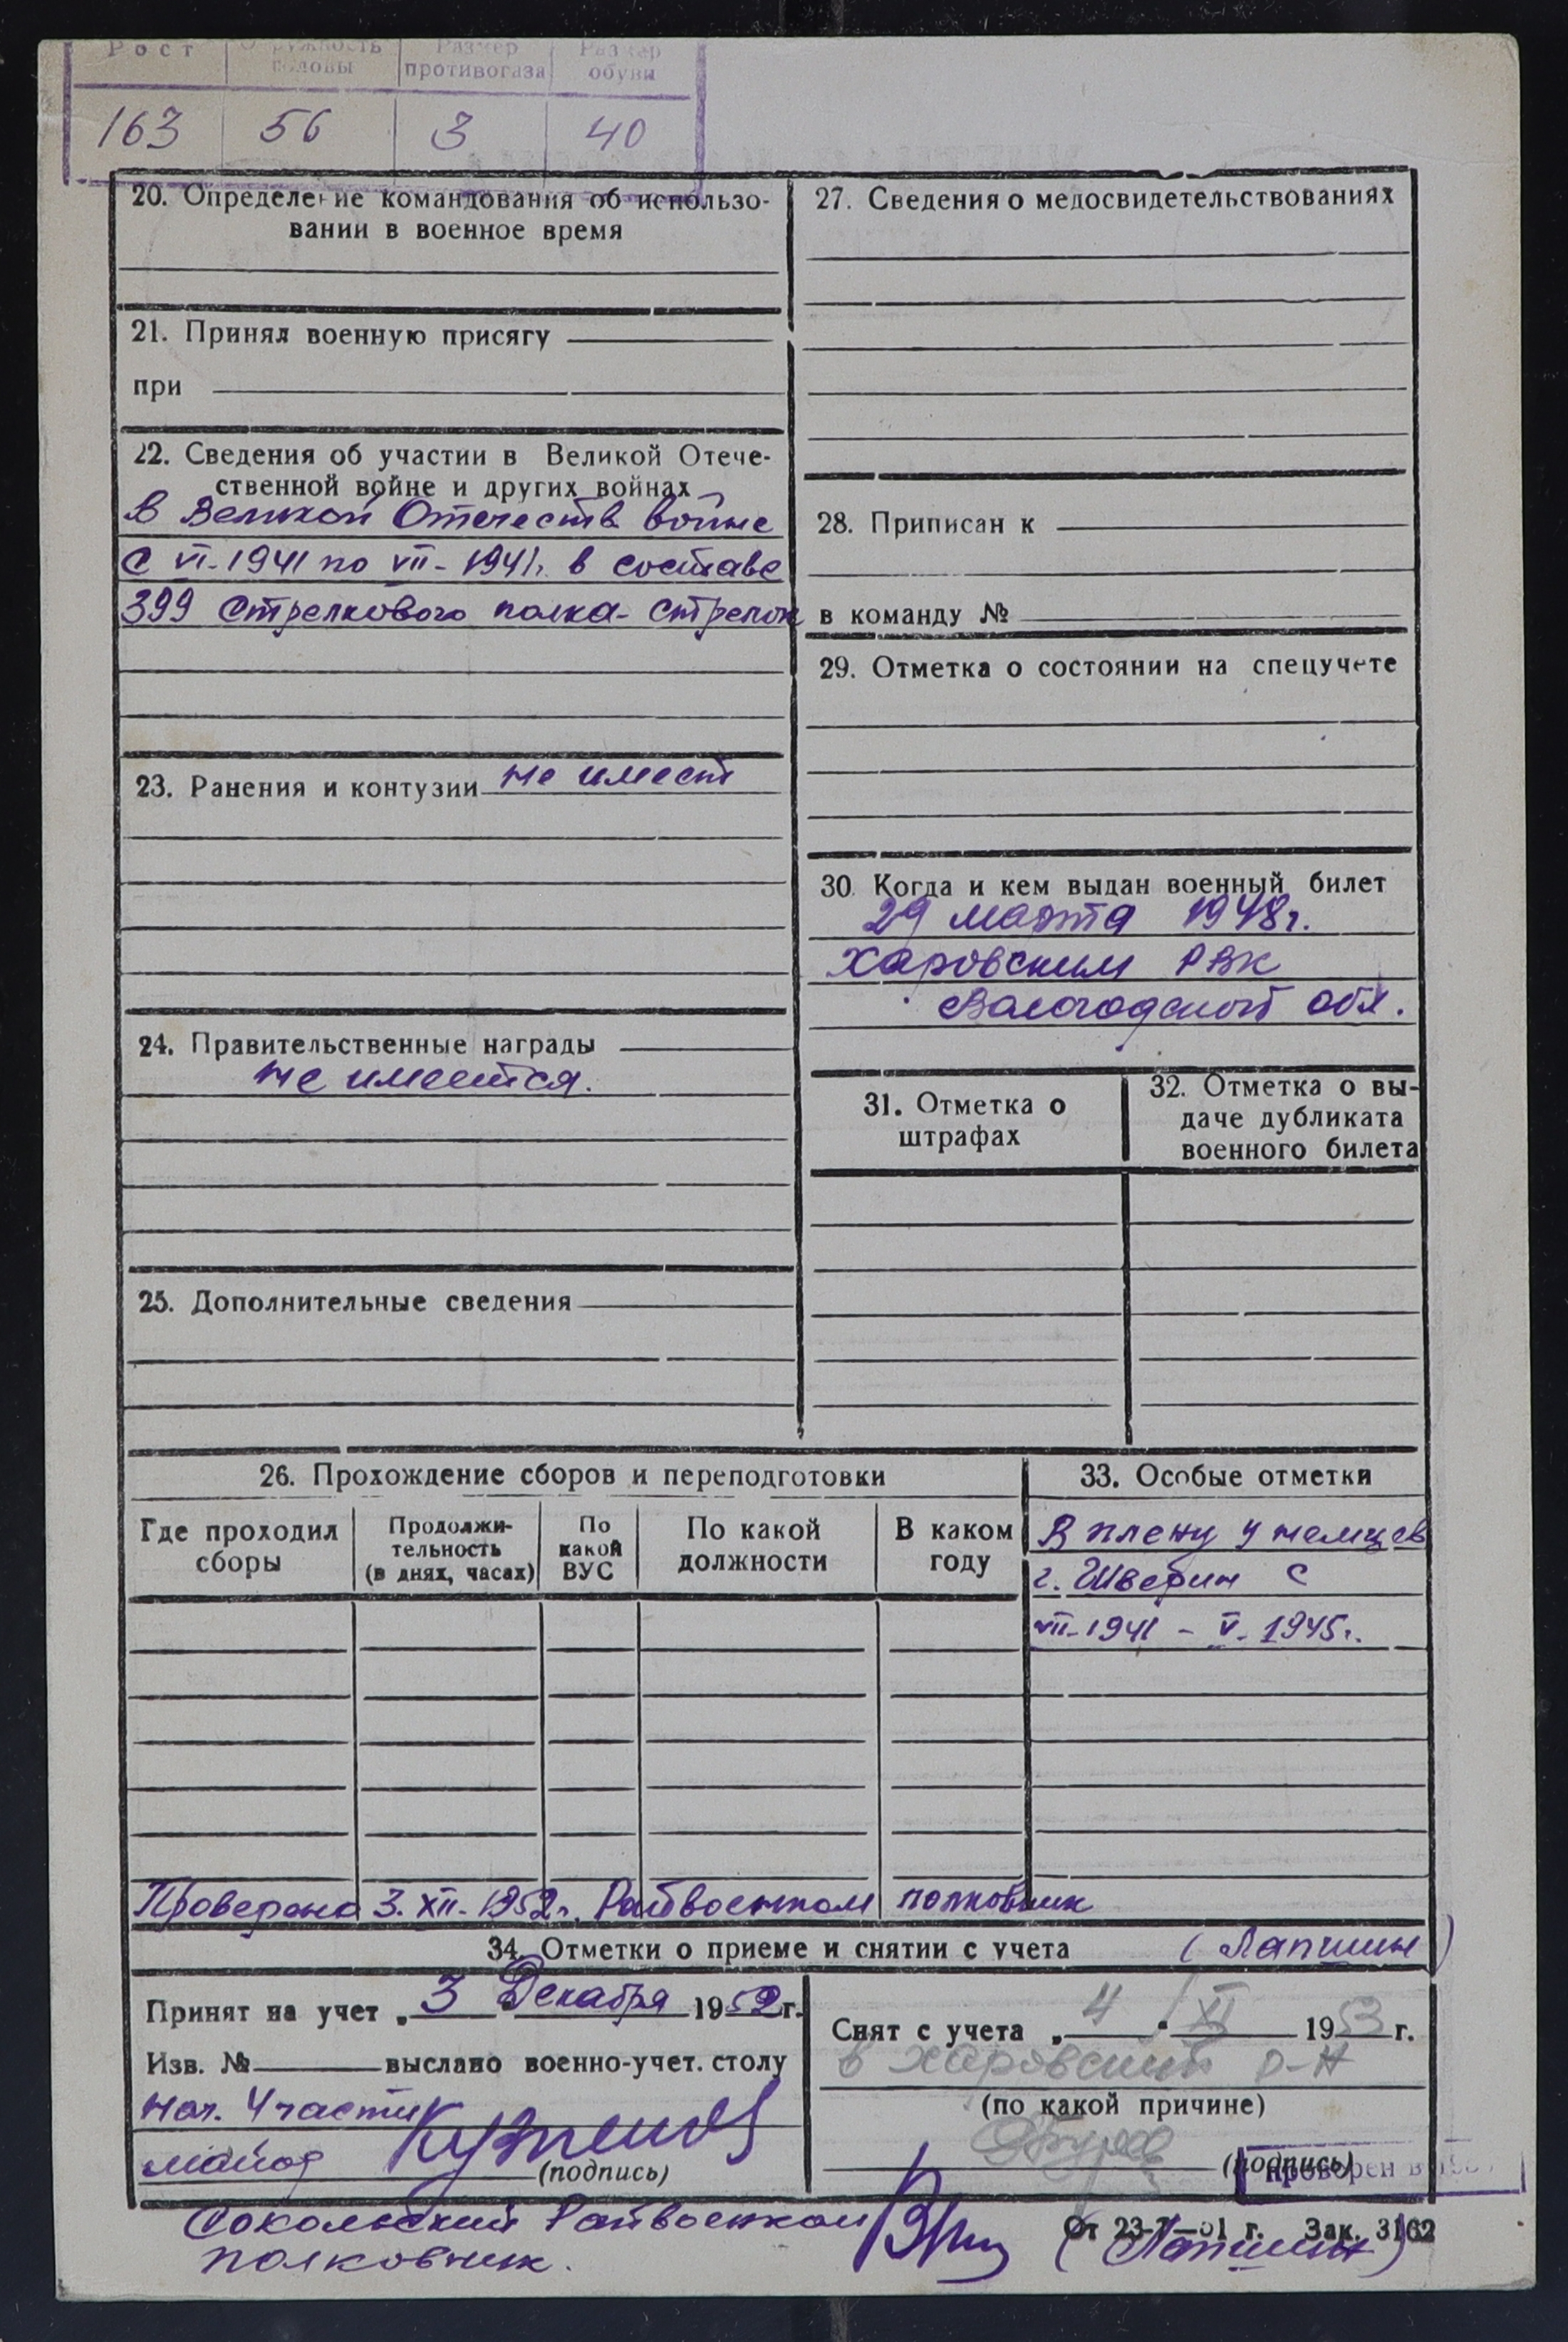 Рост Окружность головы Размер противогаза Размер обуви
163 56 3 40
20. Определение командования об использо-
вании в военное время
21. Принял военную присягу
при
22. Сведения об участии в Великой Отече-
ственной войне и других войнах
В Великой Отечеств войне
с VI-1941 по VII-1941г. в составе
399 стрелкового полка- стрелок
23. Ранения и контузии не имеет
24. Правительственные награды
не имеется.
25. Дополнительные сведения
27. Сведения о медосвидетельствованиях
28. Приписан к
в команду №
29. Отметка о состоянии на спецучете
30. Когда и кем выдан военный билет
29 марта 1948г.
Харовским РВК
Вологодской обл.
31. Отметка о
штрафах
32. Отметка о вы-
даче дубликата
военного билета
26. Прохождение сборов и переподготовки
Где проходил
сборы
Продолжи-
тельность
(в днях, часах)
По
какой
ВУС
По какой
должности
В каком
году
33. Особые отметки
В плену у немцев
г. Шверин с
VII-1941 - V-1945г.
Проверено 3.XII-1952г. Райвоенком полковник
(Лапшин)
34. Отметки о приеме и снятии с учета
Принят на учет „3" Декабря 1952г.
Изв. № выслано военно-учет. столу
Нач. 4 части
майор
(подпись)
Снят с учета „4" XI 1953 г.
в Харовский р-н
(по какой причине)
(подпись)
проверен в
Сокольский Райвоенком
полковник. (Лапшин)
Зак. 3162